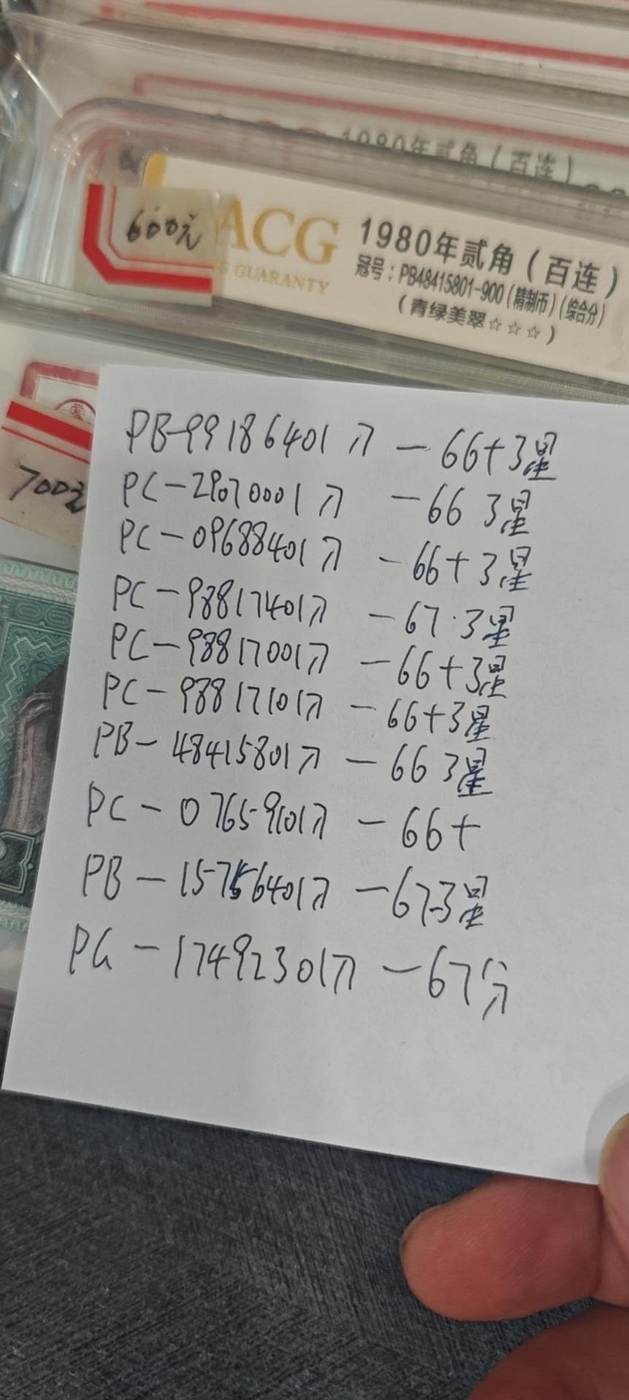 1980年贰角（百连）
600元
ACG
GUARANTY
1980年贰角（百连）
冠号：PB48415801-900（精制币）（综合分）
（青绿美翠☆☆☆）
700元
PB-99186401刀 - 66+3星
PC-29070001刀 - 66 3星
PC-09688401刀 - 66+3星
PC-98817401刀 - 67·3星
PC-98817001刀 - 66+3星
PC-98817101刀 - 66+3星
PB-48415801刀 - 66 3星
PC-07659101刀 - 66+
PB-15756401刀 - 67-3星
PG-17492301刀 - 67分